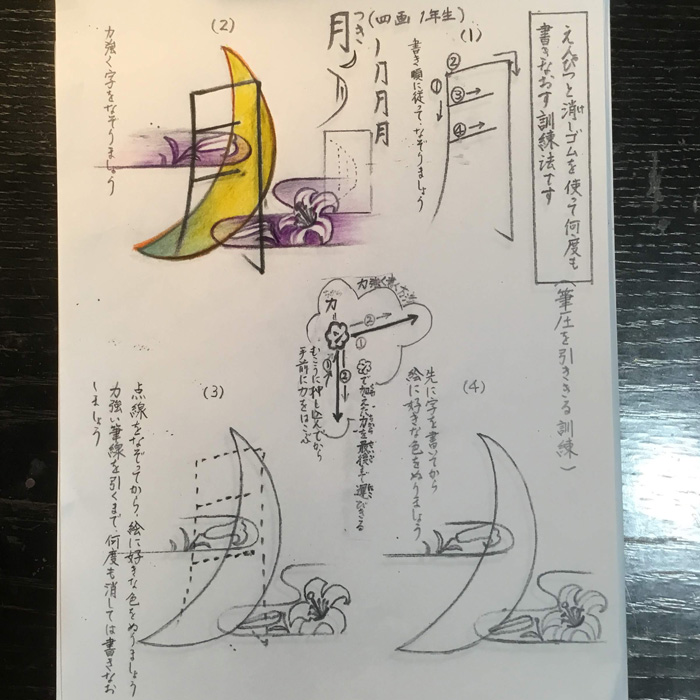 えんぴつと消しゴムを使って何度も
書きなおす訓練法です
(筆圧を引ききる訓練)
(四画 1年生)
つき
月
丿 刀 月 月
(1)
① ② ③ ④
書き順に従ってなぞりましょう
(2)
力強く字をなぞりましょう
力強く書く方法
力
② ①
① ②
むこうに押し込んでから
手前に力をはこぶ
で加えた力を最後まで運びきる
(3)
点線をなぞってから、絵に好きな色をぬりましょう
力強い筆線を引くまで、何度も消しては書きなお
しましょう
(4)
先に字を書いてから
絵に好きな色をぬりましょう